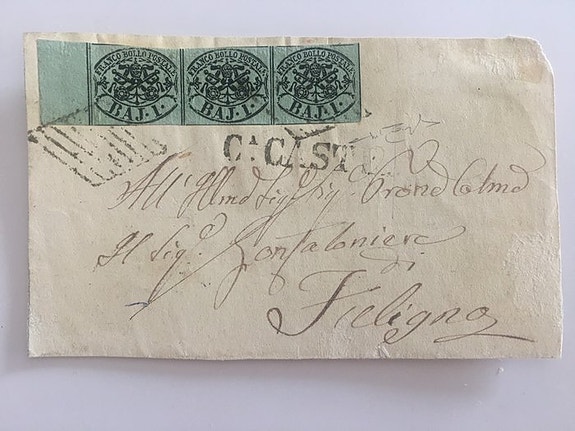 FRANCO BOLLO POSTALE BAJ. 1. FRANCO BOLLO POSTALE BAJ. 1. FRANCO BOLLO POSTALE BAJ. 1.
Cᴬ CAST
All' Illmo Sig. Sig. Pron Colmo
Il Sigʳ Gonfaloniere
di
Fuligno